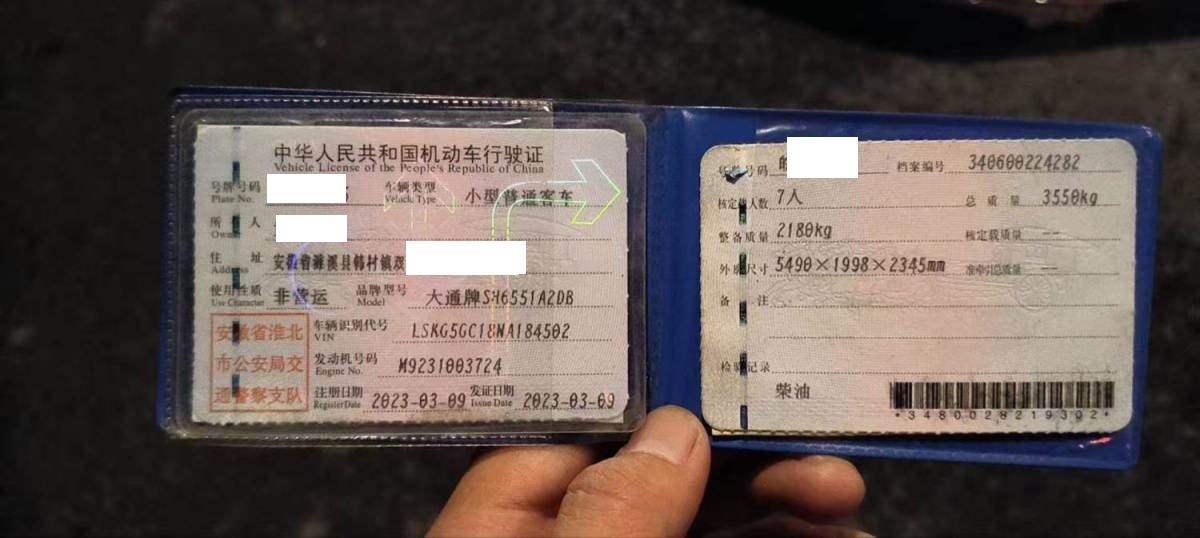 中华人民共和国机动车行驶证
Vehicle License of the People's Republic of China
号牌号码 车辆类型 小型普通客车
Plate No. Vehicle Type
所 人
Owner
住 址 安徽省濉溪县韩村镇双
Address
使用性质 非营运 品牌型号 大通牌SH6551A2DB
Use Character Model
安徽省淮北
市公安局交
通警察支队
车辆识别代号 LSKG5GC18NA184502
VIN
发动机号码 M9231003724
Engine No.
注册日期 2023-03-09 发证日期 2023-03-09
Register Date Issue Date
号码 皖 档案编号 340600224282
核定 人数 7人 总质量 3550kg
整备质量 2180kg 核定载质量 --
外 尺寸 5490×1998×2345 准牵引总质量 --
备 注
检 记录
柴油
*3480028219302*